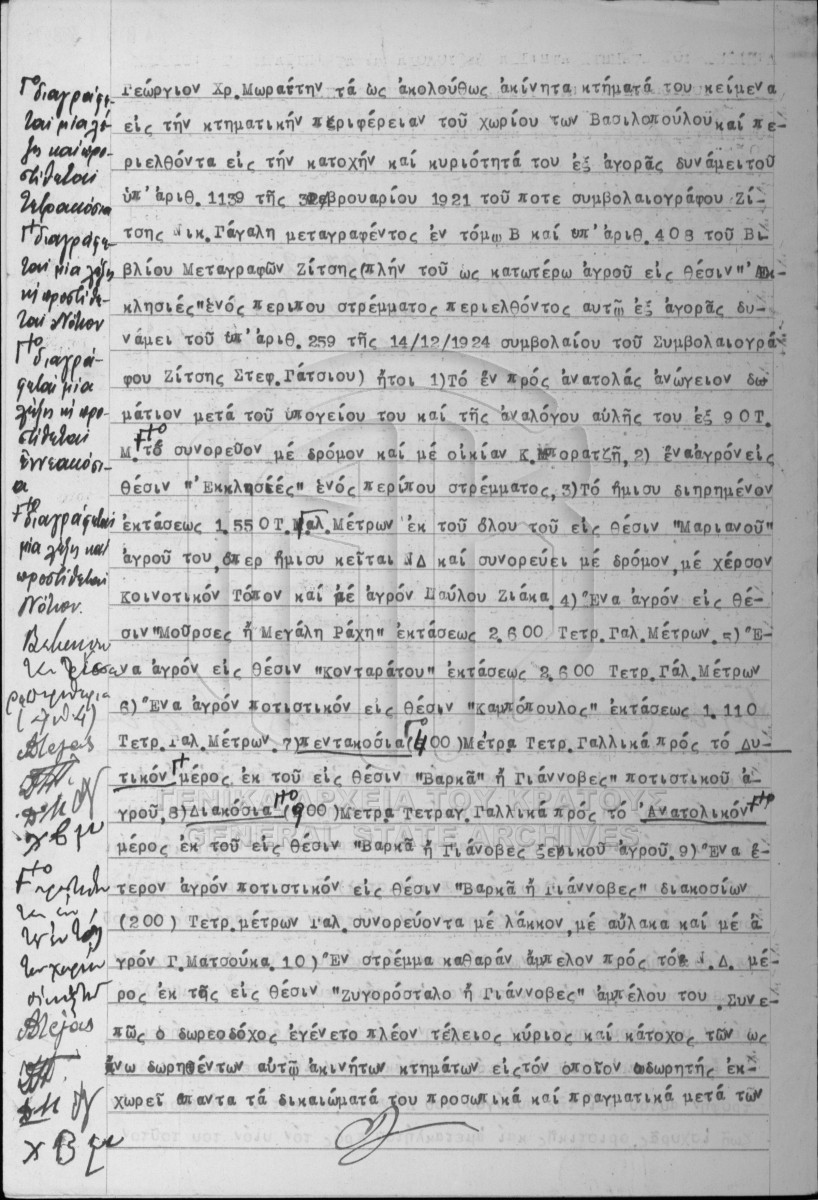 Γεώργιον Χρ.Μωραΐτην τά ὡς ἀκολούθως ἀκίνητα κτήματά του κείμενα
εἰς τήν κτηματικήν περιφέρειαν τοῦ χωρίου των Βασιλοπούλου καί πε-
ριελθόντα εἰς τήν κατοχήν καί κυριότητά του ἐξ ἀγορᾶς δυνάμει τοῦ
ὑπ'ἀριθ. 1139 τῆς Φεβρουαρίου 1921 τοῦ ποτε συμβολαιογράφου Ζί-
τσης Νικ.Γάγαλη μεταγραφέντος ἐν τόμῳ Β καί ὑπ'ἀριθ.408 τοῦ Βι-
βλίου Μεταγραφῶν Ζίτσης(πλήν τοῦ ὡς κατωτέρω ἀγροῦ εἰς θέσιν"'Εκ-
κλησιές"ἑνός περιπου στρέμματος περιελθόντος αυτῷ ἐξ ἀγορᾶς δυ-
νάμει τοῦ ὑπ'ἀριθ. 259 τῆς 14/12/1924 συμβολαίου τοῦ Συμβολαιογρά
φου Ζίτσης Στεφ.Γάτσιου) ἤτοι 1)Τό ἕν πρός ἀνατολάς ἀνώγειον δω-
μάτιον μετά τοῦ υπογείου του καί τῆς ἀναλόγου αὐλῆς του ἐξ 90Τ.
Μ. τό συνορεῦον μέ δρόμον καί μέ οἰκίαν Κ.Μπορατζῆ, 2) ἕνα ἀγρόν εἰς
θέσιν "'Εκκλησιές" ἑνός περίπου στρέμματος, 3)Τό ἥμισυ διηρημένον
ἐκτάσεως 1.550Τ.Γαλ.Μέτρων ἐκ τοῦ ὅλου τοῦ εἰς θέσιν "Μαριανοῦ"
ἀγροῦ του, ὅπερ ἥμισυ κεῖται ΝΔ καί συνορεύει μέ δρόμον, μέ χέρσον
Κοινοτικόν Τόπον καί μέ ἀγρόν Παύλου Ζιάκα. 4)"Ενα ἀγρόν εἰς θέ-
σιν"Μοῦρσες ἤ Μεγάλη Ράχη" ἐκτάσεως 2.600 Τετρ.Γαλ.Μέτρων. 5)"Ε-
να ἀγρόν εἰς θέσιν "Κονταράτου" ἐκτάσεως 2.600 Τετρ.Γάλ.Μέτρων
6)"Ενα ἀγρόν ποτιστικόν εἰς θέσιν "Καμπόπουλος" ἐκτάσεως 1.110
Τετρ.Γαλ.Μέτρων. 7)πεντακοσία(400)Μέτρα Τετρ.Γαλλικά πρός τό Δυ-
τικόν μέρος ἐκ τοῦ εἰς θέσιν "Βαρκᾶ" ἤ Γιάννοβες" ποτιστικοῦ ἀ-
γροῦ, 8)Διακόσια (900)Μετρα Τετραγ.Γαλλικά πρός τό 'Ανατολικόν
μέρος ἐκ τοῦ εἰς θέσιν "Βαρκᾶ ἤ Γιάνοβες ξερικοῦ ἀγροῦ. 9)"Ενα ἕ-
τερον ἀγρόν ποτιστικόν εἰς θέσιν "Βαρκᾶ ἤ Γιάννοβες" διακοσίων
(200) Τετρ.μέτρων Γαλ.συνορεύοντα μέ λάκκον, μέ αὔλακα καί μέ ἀ
γρόν Γ.Ματσούκα. 10)"Εν στρέμμα καθαράν ἄμπελον πρός τό Ν.Δ. μέ-
ρος ἐκ τῆς εἰς θέσιν "Ζυγορόσταλο ἤ Γιάννοβες" ἀμπέλου του .Συνε-
πῶς ὁ δωρεοδόχος ἐγένετο πλέον τέλειος κύριος καί κάτοχος τῶν ως
ἄνω δωρηθέντων αὐτῷ ἀκινήτων κτημάτων εἰς τόν ὁποῖον ὁ δωρητής ἐκ-
χωρεῖ ἅπαντα τά δικαιώματά του προσωπικά καί πραγματικά μετά τῶν
διαγράφε-
ται μία λέ-
ξη καί προ-
στίθεται
τετρακόσια
διαγράφε-
ται μία λέξη
κ προστίθε-
ται Νότιον
διαγρά-
φεται μία
λέξη κ προ-
στίθεται
ἐννεακόσι-
α
διαγράφεται
μία λέξη καί
προστίθεται
Νότιον.
ΓΕΝΙΚΑ ΑΡΧΕΙΑ ΤΟΥ ΚΡΑΤΟΥΣ
GENERAL STATE ARCHIVES